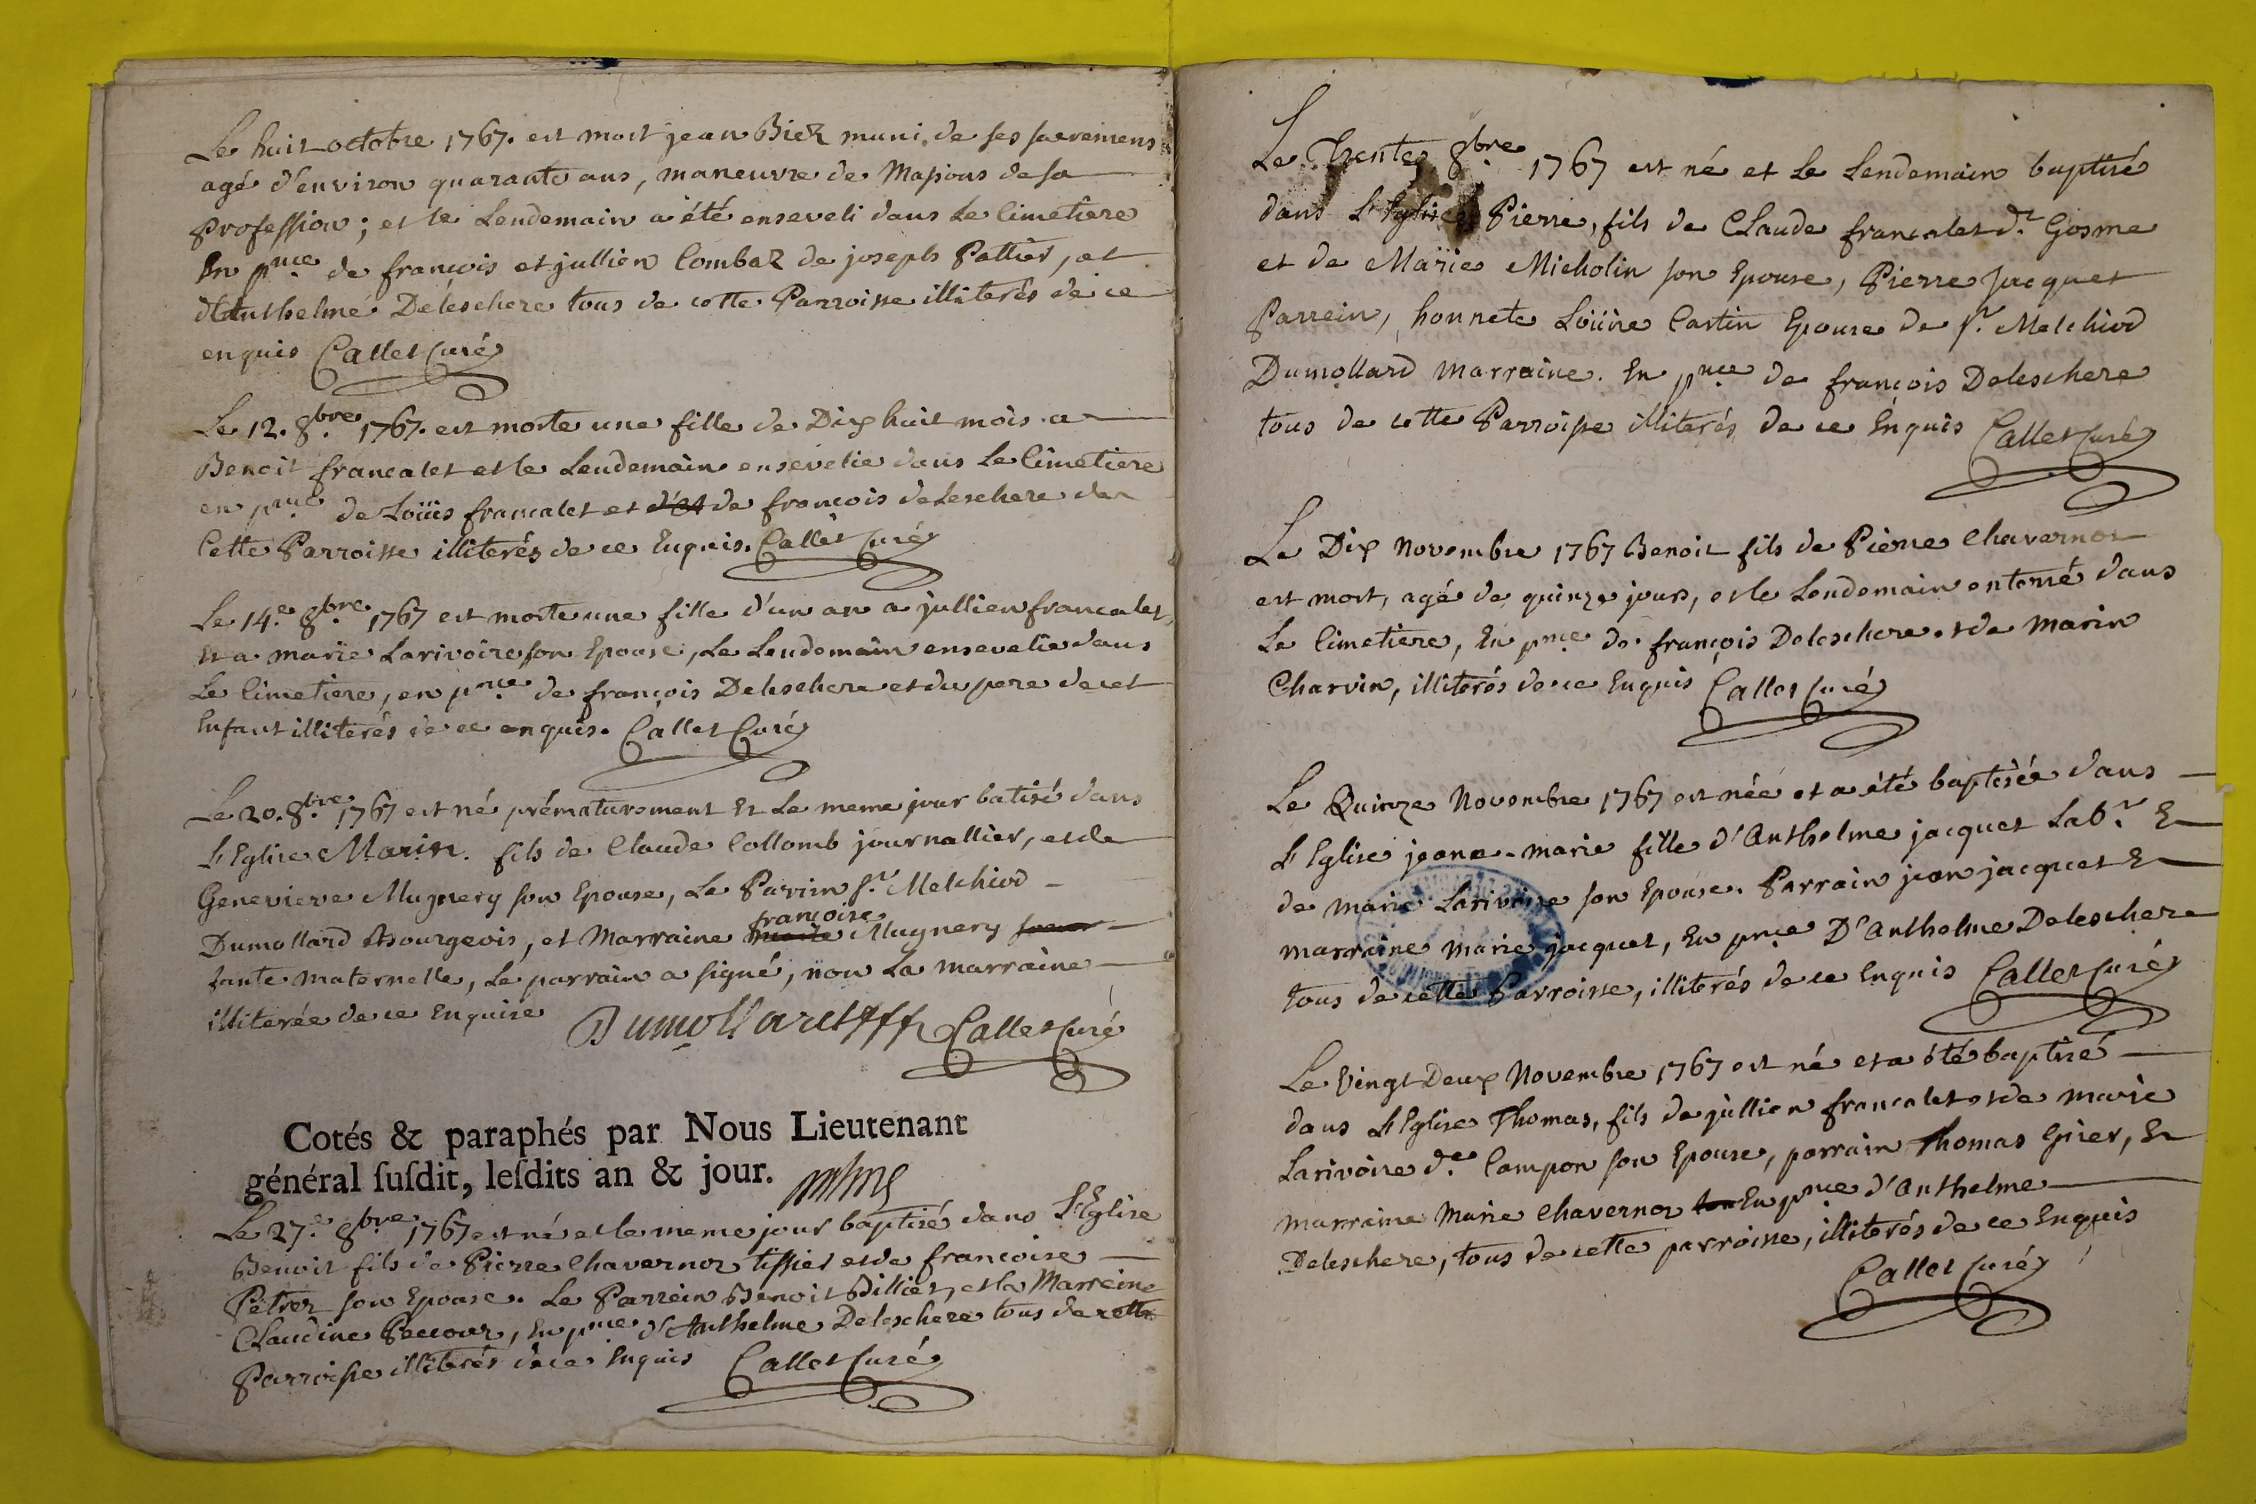 Le huit octobre 1767. est mort jean Biez muni de ses sacremens
agé d'environ quarante ans, maneuvre de Massons de sa
Profession; et le Lendemain a été enseveli dans Le Cimetiere
En pnce de françois et jullien Combaz de joseph Pattier, et
d'Anthelme Deleschere tous de cette Parroisse illiterés de ce
enquis Callet Curé
Le 12. 8bre 1767. est morte une fille de Dix huit mois a
Benoit francalet et le Lendemain ensevelie dans Le Cimetiere
en pnce de Loüis francalet et de françois deleschere de
Cette Parroisse illiterés de ce Enquis. Callet Curé
Le 14.e 8bre 1767 est morte une fille d'un an a jullien francalet,
Et a marie Larivoire son Epouse, Le Lendemain ensevelie dans
Le Cimetiere, en pnce de françois Deleschere et du pere de cet
Enfant illiterés de ce enquis. Callet Curé
Le 20. 8bre 1767 est né prématurement Et Le meme jour batisé dans
L'Eglise Marin. fils de Claude Collomb journallier, et de
Genevieve Mugnery son Epouse, Le Parrin Sr. Melchiod
Dumollard Bourgeois, et Marraine françoise Mugnery
tante maternelle, Le parrain a signé, non La marraine
illiterée de ce Enquise Dumollard Callet Curé
Cotés & paraphés par Nous Lieutenant
général ſuſdit, leſdits an & jour.
Le 27.e 8bre 1767 est né et le meme jour baptisé dans L'Eglise
Benoit fils de Pierre Chavernoz tissier et de françoise
Petrez son Epouse. Le Parrein Benoit Billiet, et la Marreine
Claudine Paccour, En pnce d'Anthelme Deleschere tous de cette
Parroisse illiterés de ce Enquis Callet Curé
Le Trente 8bre 1767 est né et Le Lendemain baptisé
dans L'Eglise Pierre, fils de Claude francalet dt. Gosme
et de Marie Micholin son Epouse, Pierre Jacquet
Parrein, honnete Loüise Castin Epouse de Sr. Melchiod
Dumollard Marraine. En pnce de françois Deleschere
tous de cette Parroisse illiterés de ce Enquis Callet Curé
Le Dix Novembre 1767 Benoit fils de Pierre Chavernoz
est mort, agé de quinze jours, et le Lendemain enterré dans
Le Cimetiere, En pnce de françois Deleschere et de Marin
Charvin, illiterés de ce Enquis Callet Curé
Le Quinze Novembre 1767 est née et a été baptisée dans
L'Eglise jeane-marie fille d'Anthelme jacquet Labr. Et
de marie Larivoire son Epouse. Parrain jean jacquet Et
marraine marie jacquet, En pnce D'Anthelme Deleschere
tous de cette Parroisse, illiterés de ce Enquis Callet Curé
Le Vingt Deux Novembre 1767 est né et a été baptisé
dans L'Eglise Thomas, fils de jullien francalet et de marie
Larivoire de. Campon son Epouse, parrain Thomas Girer, Et
marraine Marie Chavernoz En pnce d'Anthelme
Deleschere, tous de cette parroisse, illiterés de ce Enquis
Callet Curé